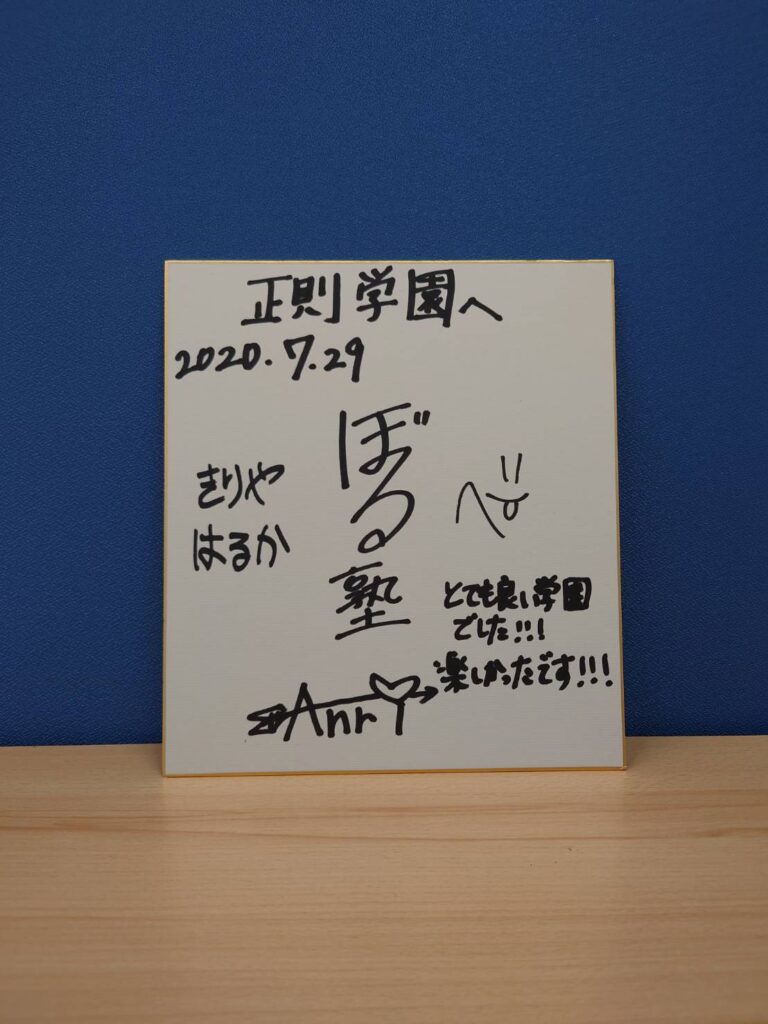 正則学園へ
2020.7.29
ぼる塾
きりや
はるか
とても良い学園
でした!!!
楽しかったです!!!
Anry